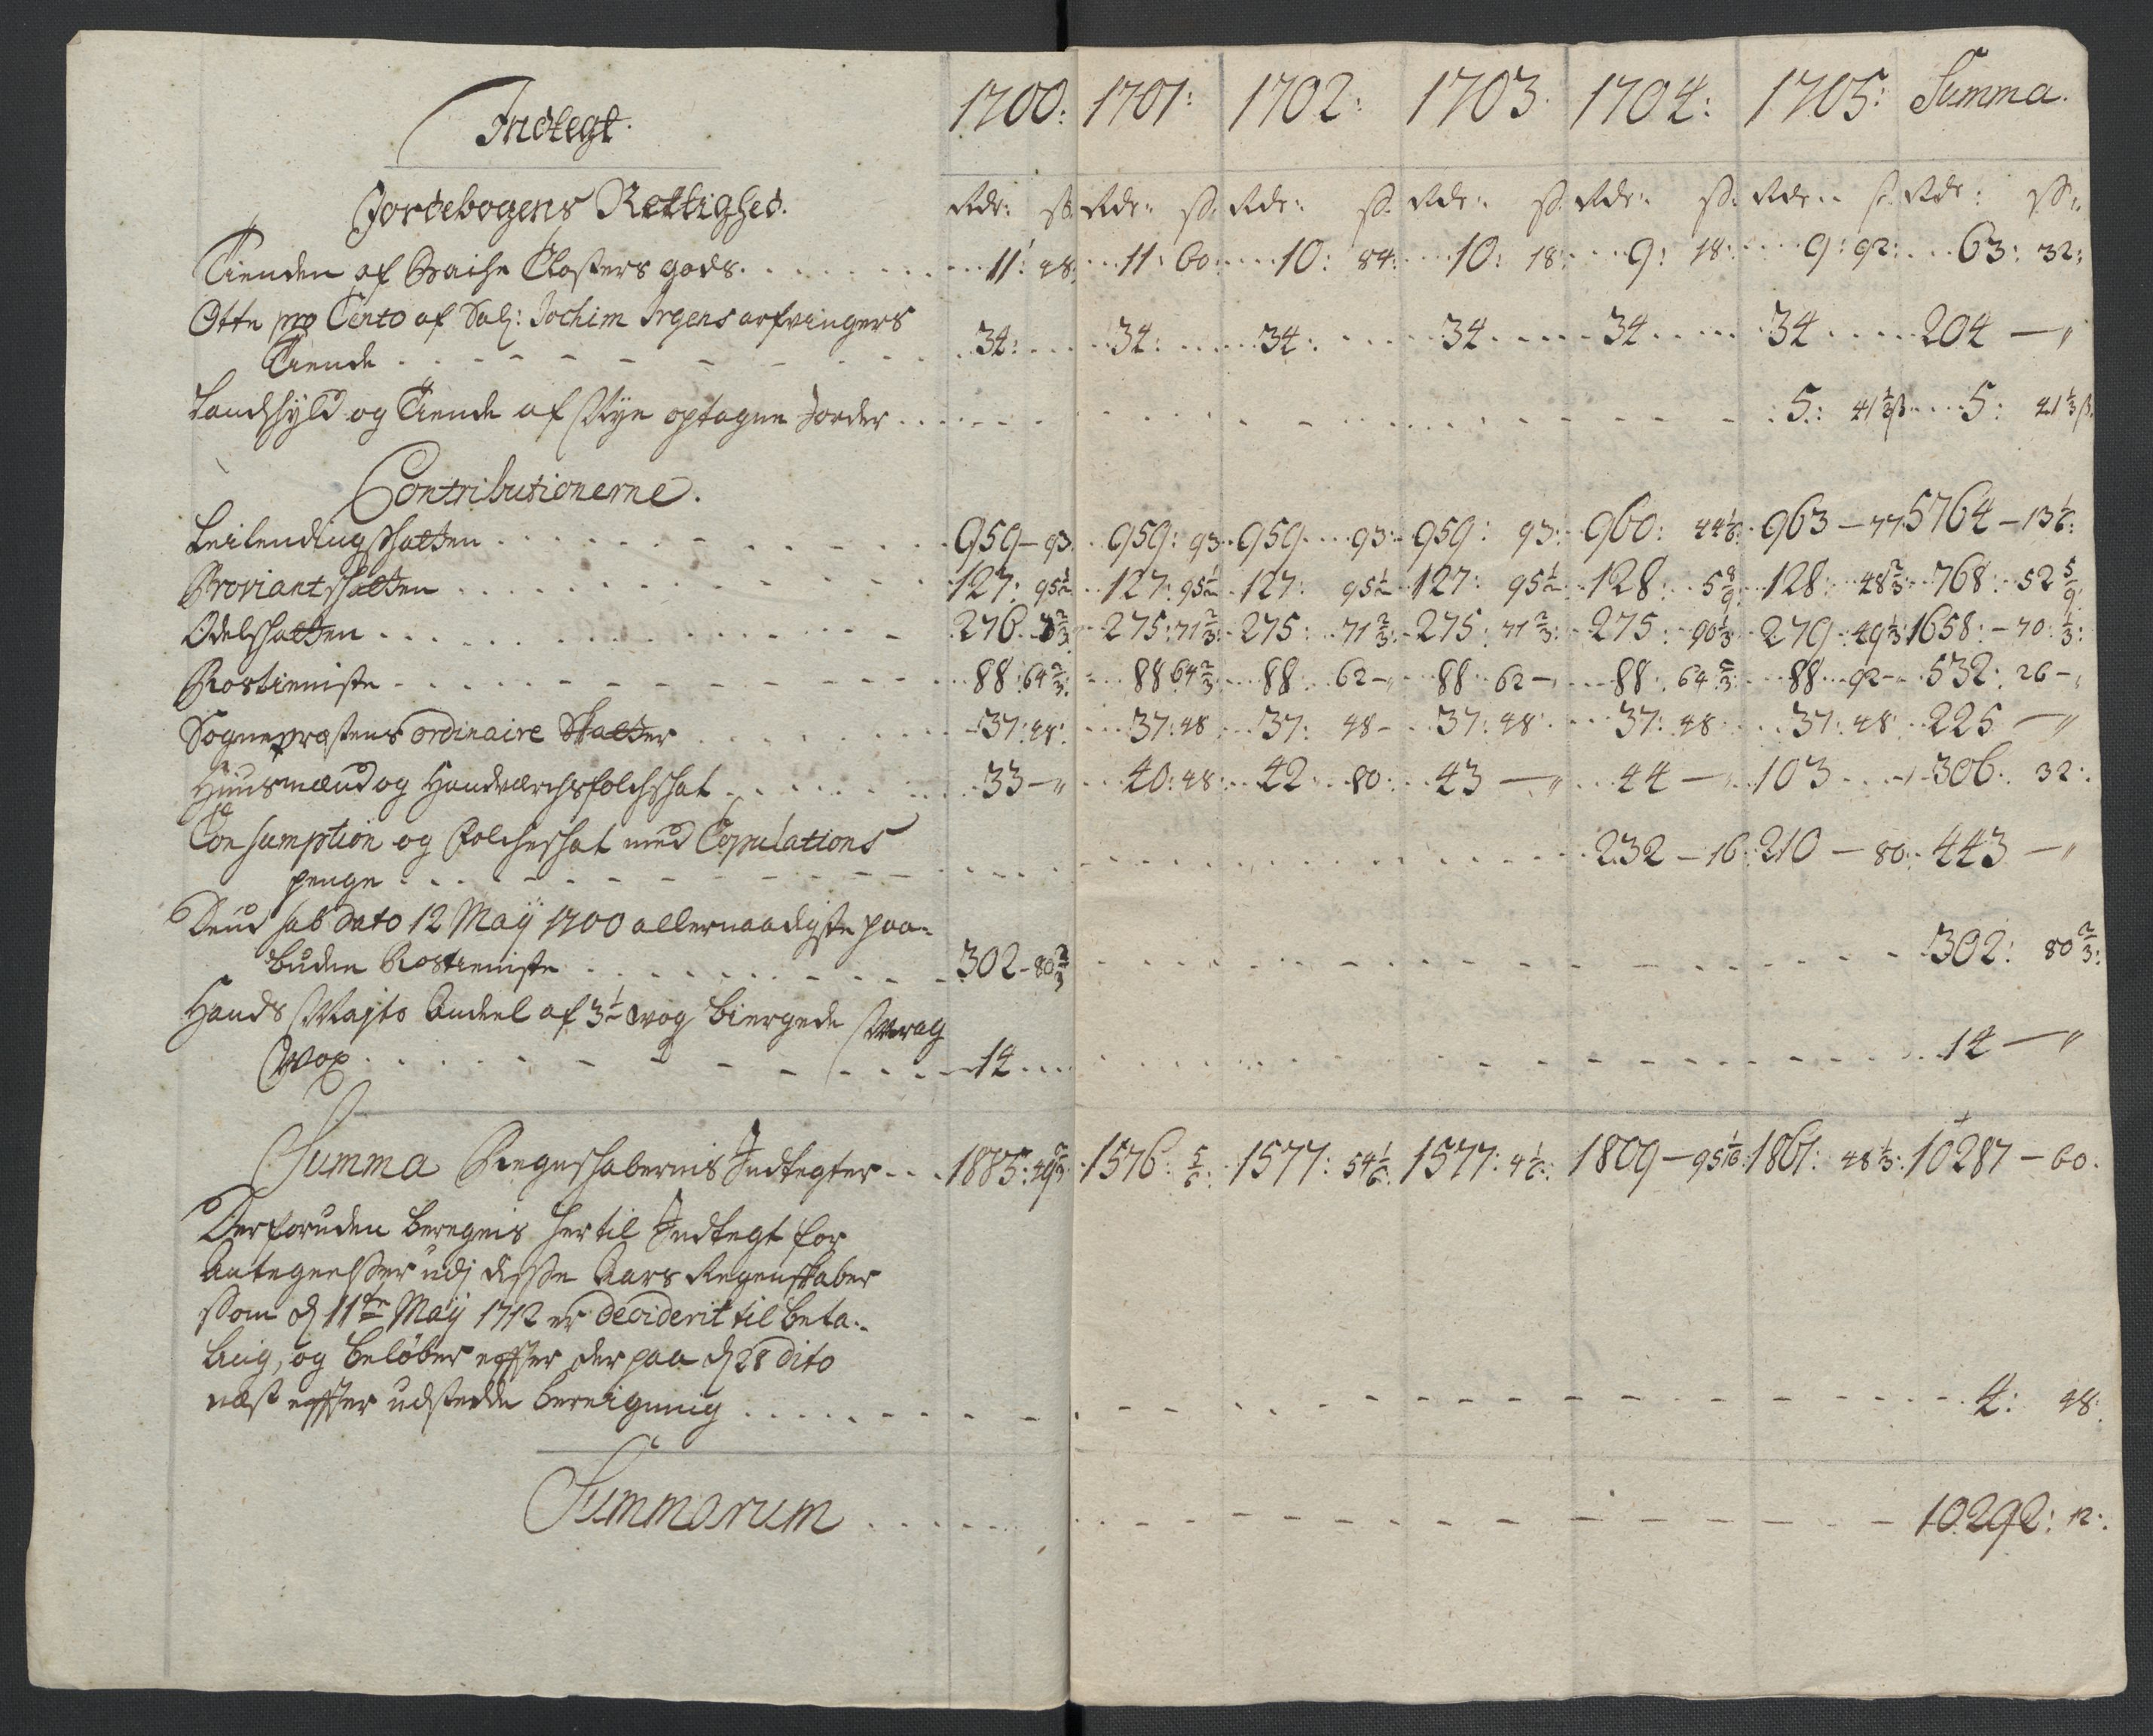 Indtegt. 1700: 1701: 1702: 1703. 1704: 1705: Summa.
Jordebogens Rettighed. Rdr: ß. Rdr: ß. Rdr: ß. Rdr: ß. Rdr: ß. Rdr: ß. Rdr: ß:
Tienden af Closters gods 11: 48: 11: 60: 10: 84: 10: 18: 9: 18: 9: 92: 63: 32:
Otte pro Cento af Sal: Jochim Irgens arfvingers
Tiende 34: 34: 34: 34 34 34 204 — "
Landschyld og Tiende af Nye optagne Jorder 5: 41 1/3 ß 5: 41 1/3 ß.
Contributionerne.
Leilendingschatten 959 - 93 959: 93 959 93 959: 93: 960: 44 1/6: 963 - 77 5764 - 13 1/6:
Proviantschatten 127: 95 1/2 127: 95 1/2 127: 95 1/2 127: 95 1/2 128: 5 8/9: 128: 48 2/3: 768: 52 5/9:
Odelschatten 276 2/3 275: 71 2/3: 275: 71 2/3: 275: 71 2/3: 275: 90 1/3 279: 49 1/3: 1658: - 70 1/3:
Rostieniste 88: 64 2/3: 88 64 2/3 88: 62 - 88: 62 - 88: 64 2/3: 88: 92 - 532: 26 -
Sogneprestens ordinaire Skatter 37: 48: 37: 48 37: 48 - 37: 48: 37: 48 37: 48 225 — "
Huusmænd og Handverchsfolchschat 33 - " 40: 48: 42 80: 43 — " 44 - " 103 306: 32:
Consumption og Folcheschat med Copulations
penge 232 - 16: 210 - 80: 443 — "
Dend sub dato 12 Maÿ 1700 allernaadigste paa-
buden Rostieniste 302 - 80 2/3 302: 80 2/3:
Hands Maÿts Andeel af 3 1/2 wog biergede Wrag
Wox 14 14 — "
Summa Regnschabernis Indtegter 1885: 49 1576: 5/6: 1577: 54 1/6: 1577: 4 1/6: 1809 - 95 1861: 48 1/3: 10287 - 60.
Derforuden beregnis hertil Indtegt for
Antegnelsser udj disse Aars Regenskaber
som d 11te Maÿ 1712 er decideret til beta-
ling, og beløber effter der paa d 28 dito
næst effter udstædde beregning 4: 48:
Summarum 10292: 12: